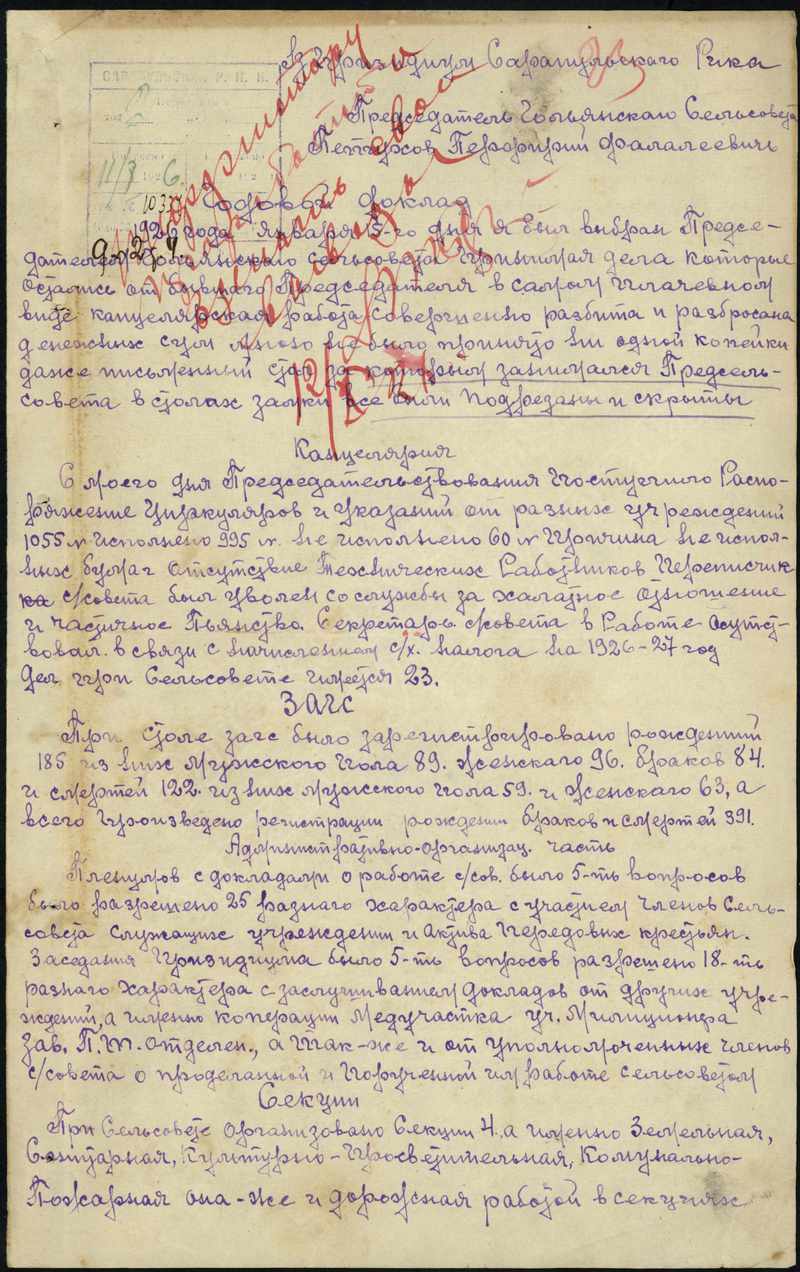 В Призидиум Сарапульского Рика
Председатель Гольянскаго Сельсовета
Петухов Перфирий Фалалеевичь
Годовой доклад
1926 года января 5-го дня я был выбран Предсе-
дателем Гольянскаго сельсовета принимая дела которые
остались от бывшаго Председателя в самом плачевном
виде канцелярская работа совершенно разбита и разбросана
денежных сумм много не было принято ни одной копейки
даже письменный стол за которым занимался Предсель-
совета в столах замки все были подрезаны и скрыты
Канцелярия
С моего дня Председательствования поступило Распо-
ряжение Циркуляров и указаний от разных учреждений
1055 № исполнено 995 №. не исполнено 60 № Причина не испол-
ных бумаг отсутствие Технических Работников Переписчик
ка с/совета был уволен со службы за халатное отношение
и частичное Пьянство. Секретарь с/совета в Работе отсутст-
вовал. в связи с начислением с/х. налога на 1926-27 год
дел при Сельсовете имеется 23.
Загс
При столе загс было зарегистрировано рождений
185 из них мужского пола 89. женскаго 96. браков 84.
и смертей 122. из них мужского пола 59. и женскаго 63, а
всего произведено регистрации рождении браков и смертей 391.
Административно-организац. часть
Пленумов с докладами о работе с/сов. было 5-ть вопросов
было разрешено 25 разнаго характера с участием членов Сель-
совета служащих учреждении и актива передовых крестьян.
Заседания Призидиума было 5-ть вопросов разрешено 18-ть
разнаго характера с заслушиванием докладов от других учре-
ждений, а именно коперации Медучастка уч. Милиционера
зав. П.Т. отделен., а так-же и от уполномоченных членов
с/совета о проделанной и порученной им работе сельсоветом
Секции
При Сельсовете организовано Секции 4. а именно Земельная,
Санитарная, Культурно-просветительная, Комунально-
Пожарная она-же и дорожная работой в секциях